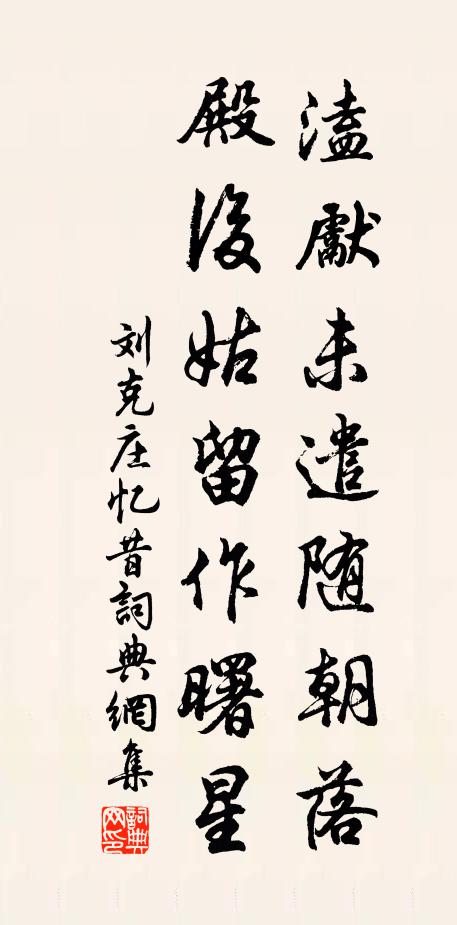 溘獻未遣随朝落
殿後姑留作曙星
刘克庄忆昔詞典網集
詞典网印